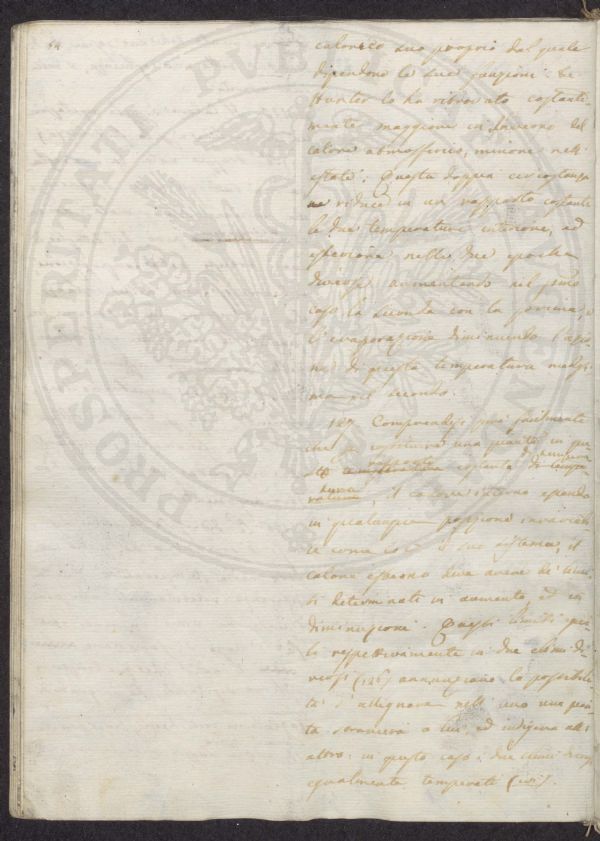 54
calorico suo proprio dal quale
dipendono le sue funzioni. L'
Hunter lo ha ritrovato costante
mente maggiore in Inverno del
calore atmosferico, minore nell'
estate. Questa doppia circostanza
riduce in un rapporto costante
le due temperature interiore, ed
esteriore nelle due epoche
diverse aumentando nel primo
caso la seconda con la prima, e
l'evaporazione diminuendo l'azio
ne di questa temperatura
nel secondo.
127 Comprendesi però facilmente
che a conservare una pianta in que
sto rapporto costante di tempera
tura, il calore interno essendo
in qualunque porzione invariabi
le come lo è il suo sistema, il
calore esterno deve avere de' limi
ti determinati in aumento ed in
diminuzione. Questi limiti
rispettivamente in due climi di
versi (126) annunziano la possibili
tà d'allignare nell'uno una pian
ta straniera a lui, ed indigena all'
altro: in questo caso i due climi
egualmente temperati
PROSPERITATI PUBLICAE AUGENDAE